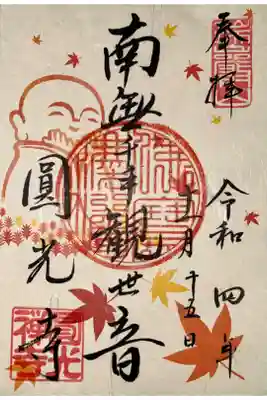 奉拝
令和四年
十一月十五日
南無千手観世音
圓光寺
圓光禅寺